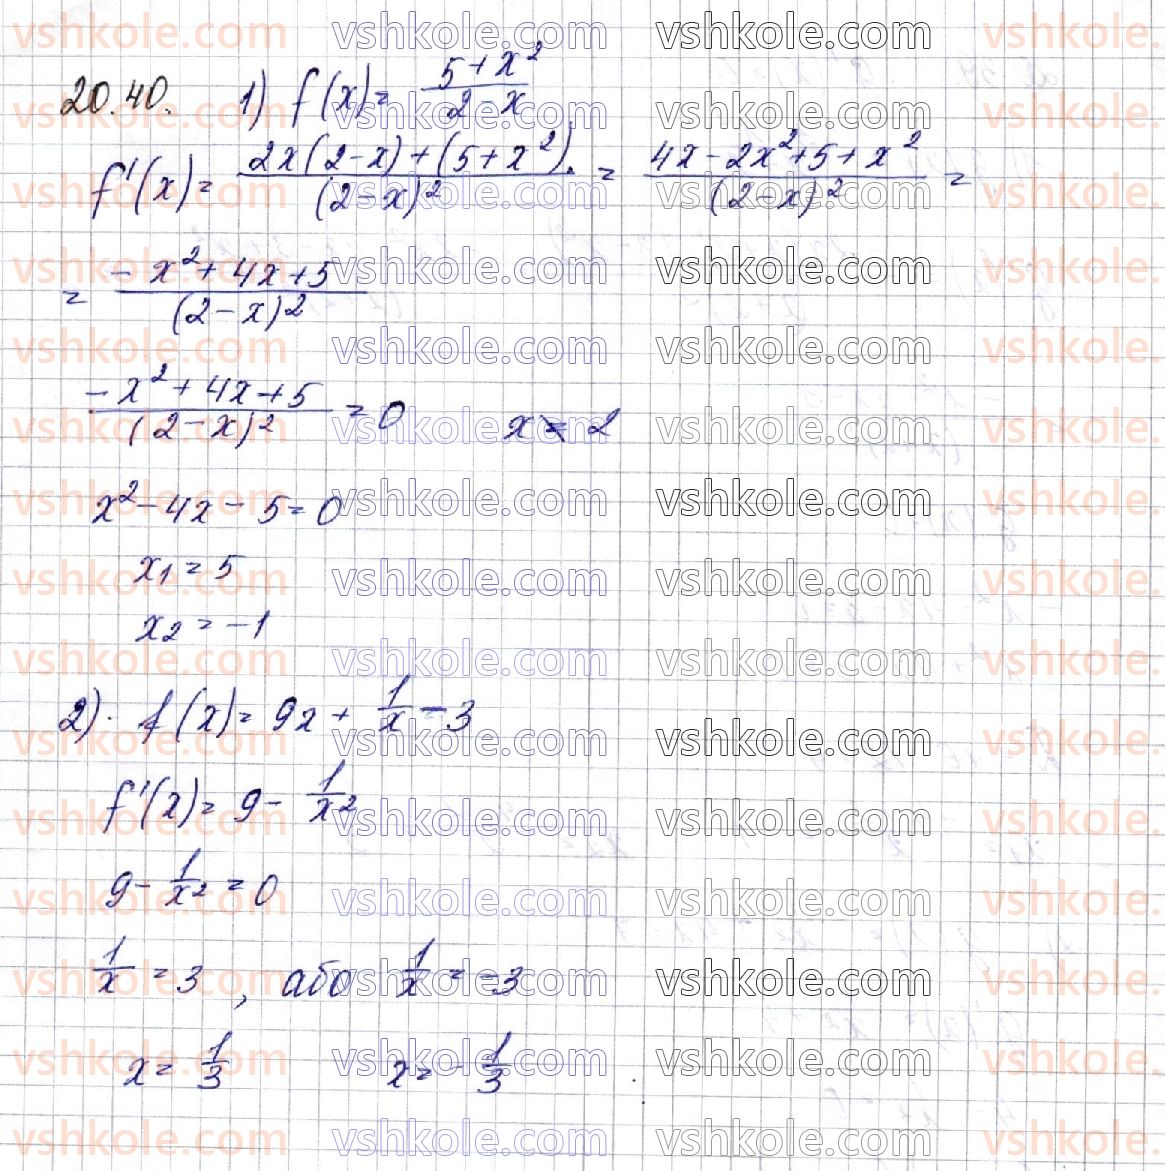 20.40. 1) f(x) = (5 + x²)/(2 - x)
f'(x) = (2x(2-x) + (5+x²)·)/(2-x)² = (4x - 2x² + 5 + x²)/(2-x)² =
= (-x² + 4x + 5)/(2-x)²
(-x² + 4x + 5)/(2-x)² = 0 x ≠ 2
x² - 4x - 5 = 0
x₁ = 5
x₂ = -1
2). f(x) = 9x + 1/x - 3
f'(x) = 9 - 1/x²
9 - 1/x² = 0
1/x = 3, або 1/x = -3
x = 1/3 x = -1/3
vshkole.com